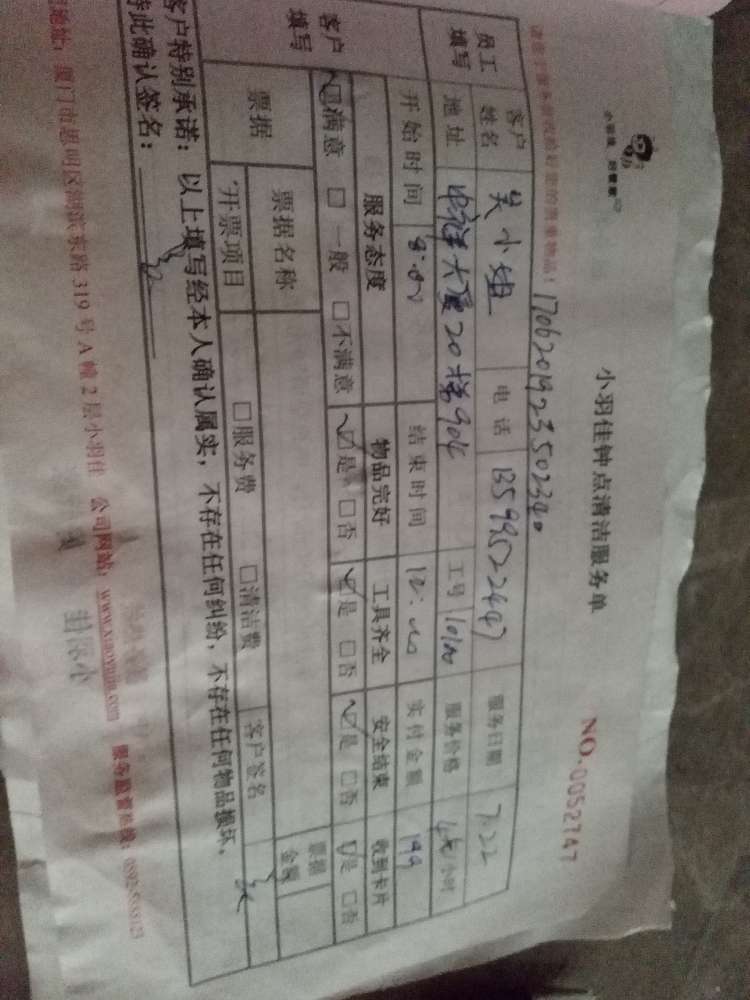 小羽佳钟点清洁服务单
NO.0052747
小羽佳 到您家
1706201923502340
员工填写 客户姓名 吴小姐 电话 服务日期 7.22
地址 大厦20楼904 工号 服务价格
开始时间 8:00 结束时间 12:00 实付金额 199
客户填写 服务态度 物品完好 工具齐全 安全结束 收到卡片
☑满意 □一般 □不满意 ☑是 □否 ☑是 □否 ☑是 □否 ☑是 □否
票据 票据名称 票据金额
开票项目 □服务费 □清洁费 客户签名
客户特别承诺: 以上填写经本人确认属实, 不存在任何纠纷, 不存在任何物品损坏,
特此确认签名:
厦门市思明区湖滨东路 319 号 A 幢 2 层小羽佳 公司网站: www.xiaoyujia.com 服务监督热线: